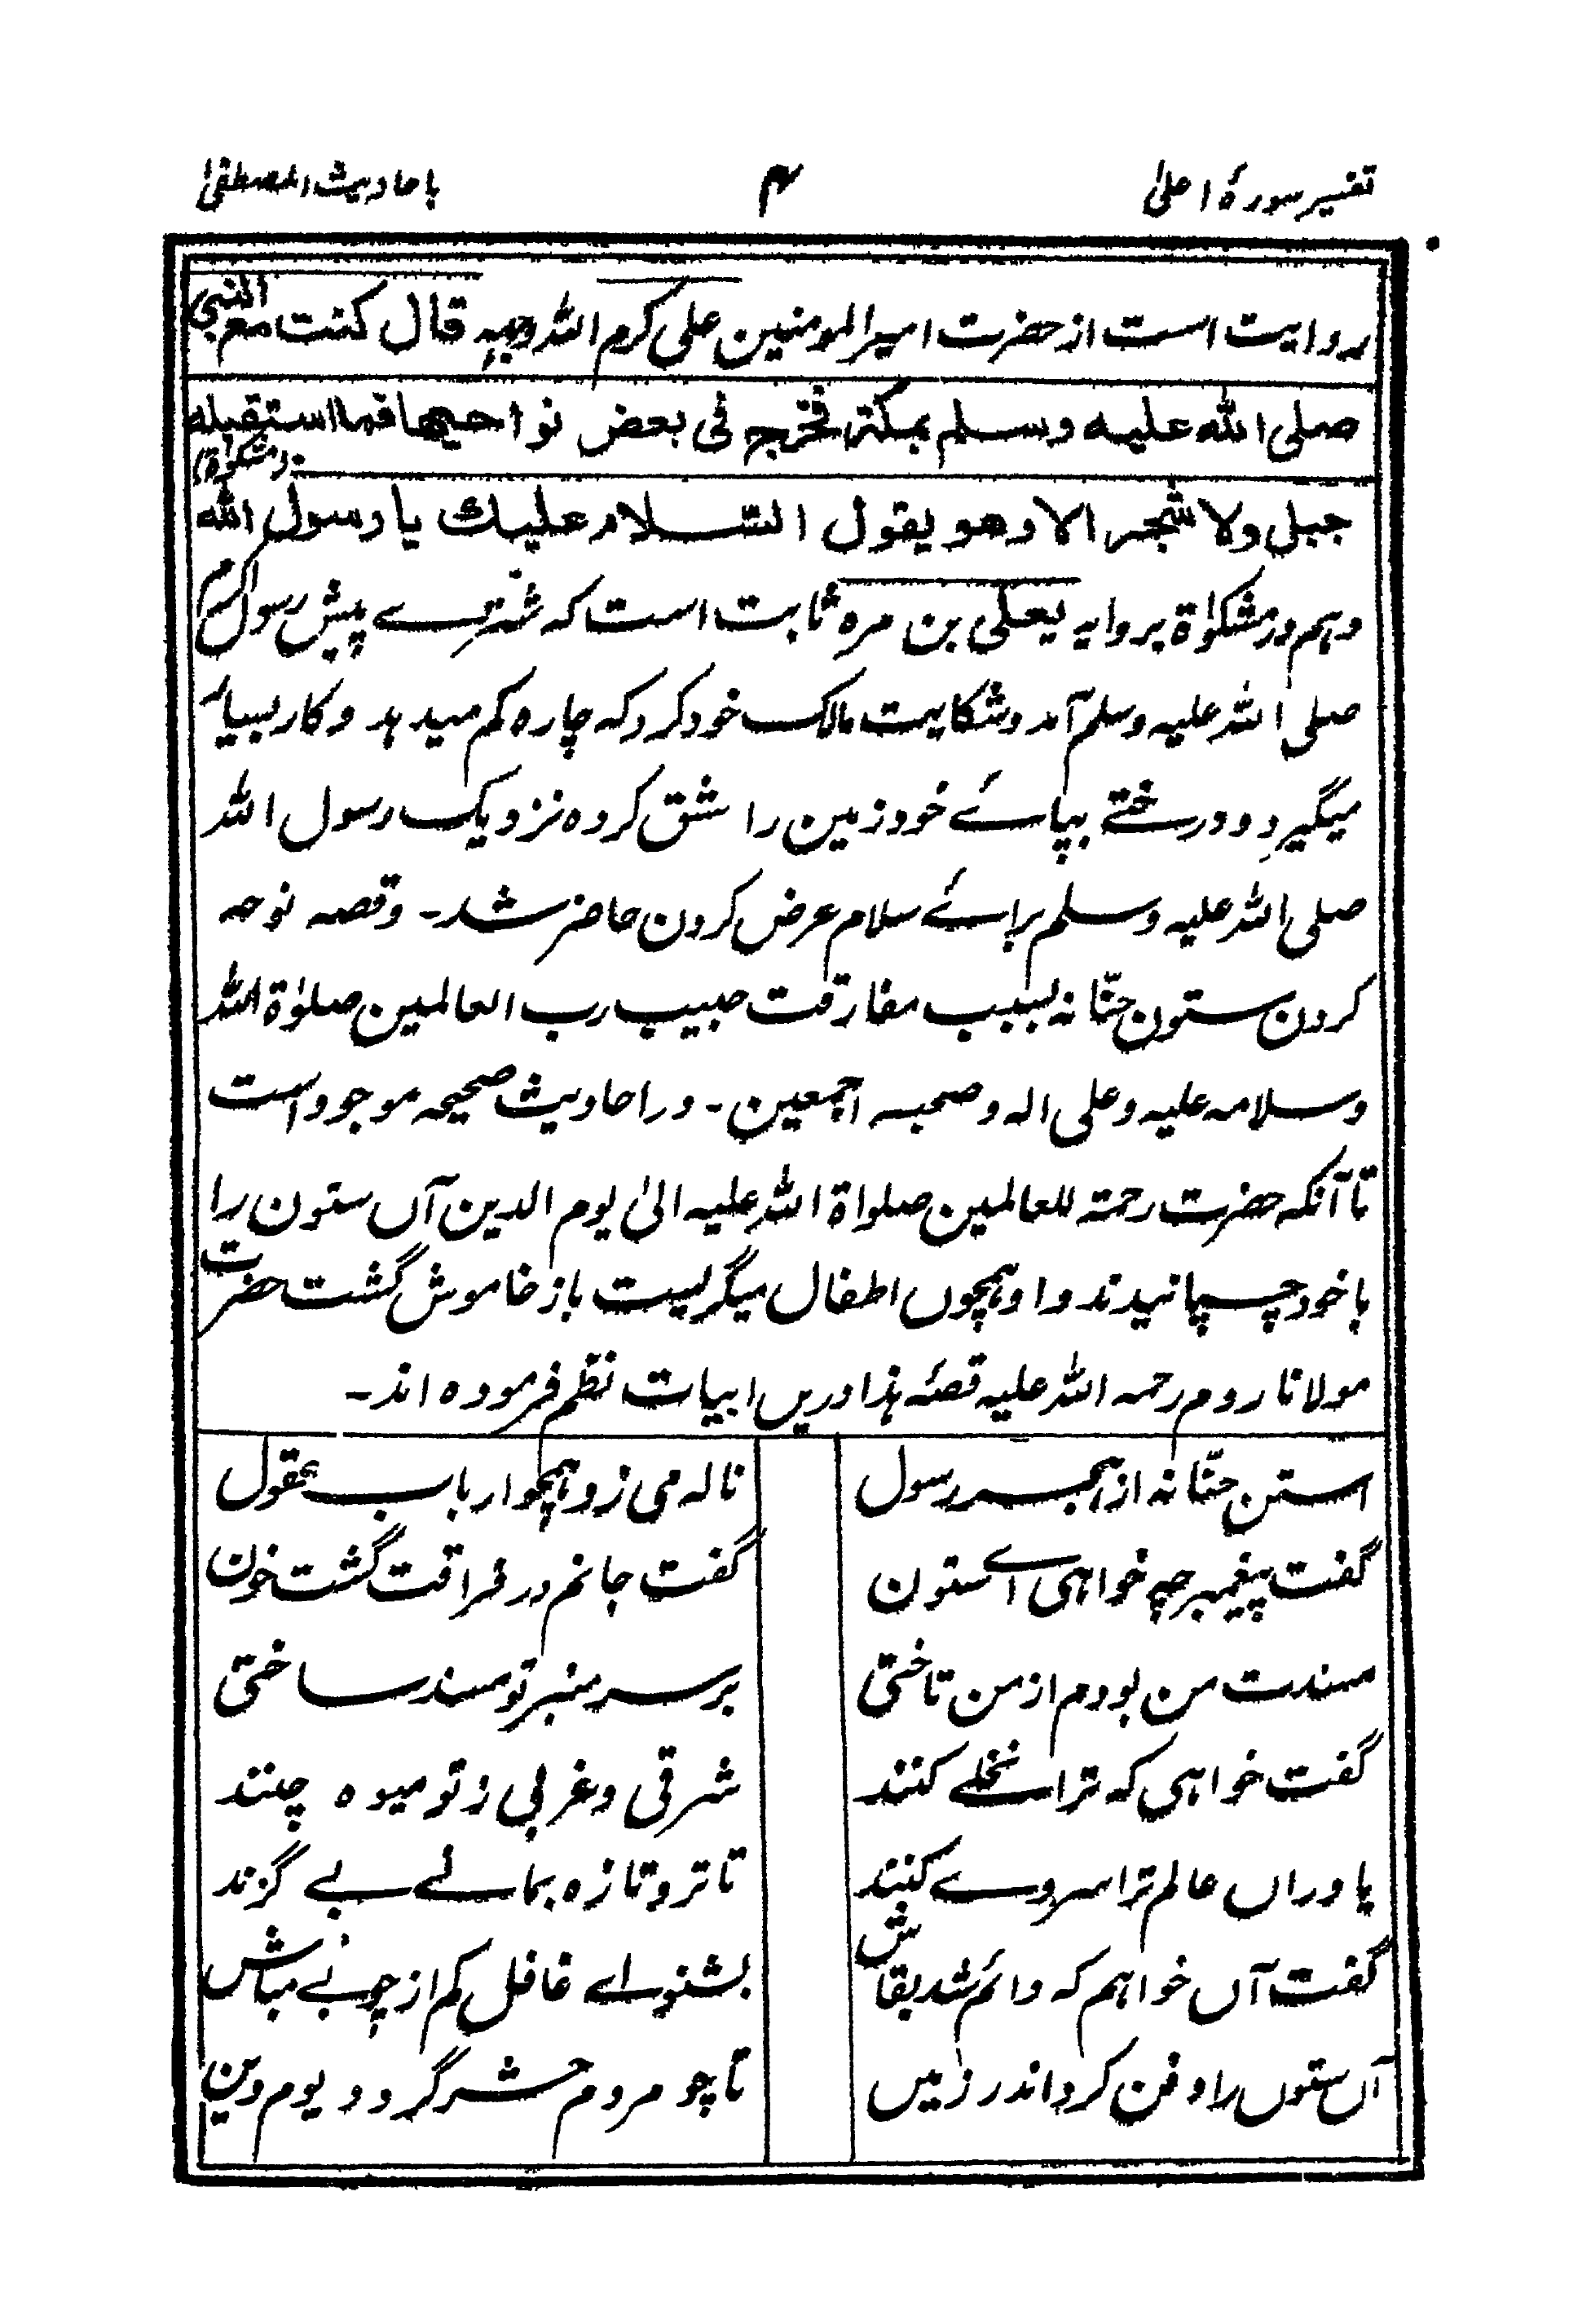 تفسیر سورۂ اعلیٰ ۴ باحادیث المصطفیٰ
روایت است از حضرت امیر المومنین علی کرم اللہ وجہہ قال کنت مع النبی
صلی اللہ علیہ وسلم بمکۃ فخرج فی بعض نواحیھا فما استقبلہ
جبل ولا شجر الا وھو یقول السّلام علیک یا رسول اللہ (مشکوٰۃ)
وہم در مشکوٰۃ بروایہ یعلی بن مرہ ثابت است کہ شترے پیش رسول اکرم
صلی اللہ علیہ وسلم آمد و شکایت مالک خود کرد کہ چارہ کم میدہد و کار بسیار
میگیرد و درختے بپائے خود زمین را شق کردہ نزدیک رسول اللہ
صلی اللہ علیہ وسلم برائے سلام عرض کردن حاضر شد۔ وقصہ نوحہ
کردن ستون حنّانہ بسبب مفارقت حبیب رب العالمین صلوٰۃ اللہ
وسلامہ علیہ وعلی الہ وصحبہ اجمعین۔ در احادیث صحیحہ موجود است
تا آنکہ حضرت رحمۃ للعالمین صلواۃ اللہ علیہ الیٰ یوم الدین آں ستون را
با خود چسپانیدند و او ہمچوں اطفال میگریست باز خاموش گشت حضرت
مولانا روم رحمہ اللہ علیہ قصۂ ہذا دریں ابیات نظم فرمودہ اند۔
استن حنّانہ از ہجر رسول نالہ می زد ہمچو ارباب عقول
گفت پیغمبر چہ خواہی اے ستون گفت جانم در فراقت گشت خون
مسندت من بودم از من تاختی بر سر منبر تو مسند ساختی
گفت خواہی کہ ترا نخلے کنند شرقی و غربی ز تو میوہ چنند
یا دراں عالم ترا سروے کنند تا تر و تازہ بمانے بے گزند
گفت آں خواہم کہ دائم شد بقاش بشنو اے غافل کم از چوبے مباش
آں ستوں را دفن کرد اندر زمیں تا چو مردم حشر گردد یوم دین